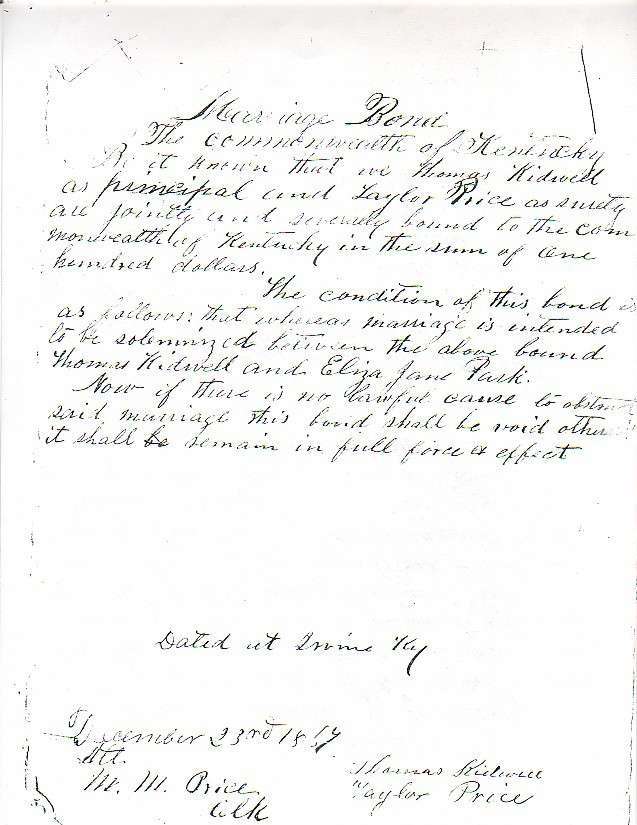 Marriage Bond
The commonwealth of Kentucky
Be it known that we Thomas Kidwell
as principal and Taylor Price as surety
are jointly and severely bound to the com
monwealth of Kentucky in the sum of one
hundred dollars.
The condition of this bond is
as follows: that whereas marriage is intended
to be solemnized between the above bound
Thomas Kidwell and Eliza Jane Park.
Now if there is no lawful cause to obstruct
said marriage this bond shall be void other
it shall be remain in full force & effect
Dated at Irvine Ky
December 23rd
Att.
M. M. Price
Clk
Thomas Kidwell
Taylor Price